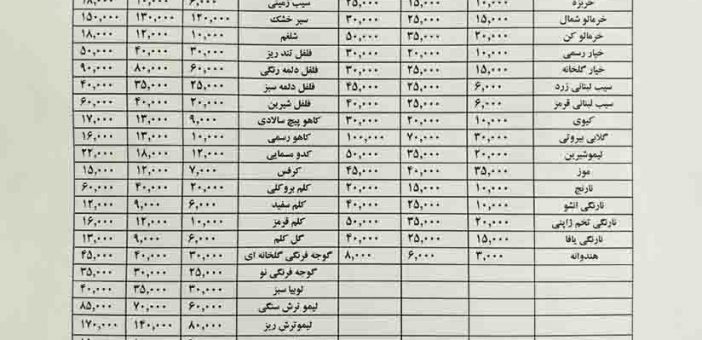 خربزه ۱۰,۰۰۰ ۱۵,۰۰۰ ۲۵,۰۰۰ سیب زمینی ۶,۰۰۰ ۱۰,۰۰۰ ۱۸,۰۰۰
خرمالو شمال ۱۵,۰۰۰ ۲۵,۰۰۰ ۳۰,۰۰۰ سیر خشک ۱۲۰,۰۰۰ ۱۳۰,۰۰۰ ۱۵۰,۰۰۰
خرمالو کن ۲۰,۰۰۰ ۳۵,۰۰۰ ۵۰,۰۰۰ شلغم ۱۰,۰۰۰ ۱۲,۰۰۰ ۱۸,۰۰۰
خیار رسمی ۱۰,۰۰۰ ۲۰,۰۰۰ ۳۰,۰۰۰ فلفل تند ریز ۳۰,۰۰۰ ۴۰,۰۰۰ ۵۰,۰۰۰
خیار گلخانه ۱۵,۰۰۰ ۲۵,۰۰۰ ۳۰,۰۰۰ فلفل دلمه رنگی ۶۰,۰۰۰ ۸۰,۰۰۰ ۹۰,۰۰۰
سیب لبنانی زرد ۶,۰۰۰ ۲۵,۰۰۰ ۴۵,۰۰۰ فلفل دلمه سبز ۲۵,۰۰۰ ۳۵,۰۰۰ ۴۰,۰۰۰
سیب لبنانی قرمز ۶,۰۰۰ ۲۵,۰۰۰ ۴۰,۰۰۰ فلفل شیرین ۲۰,۰۰۰ ۴۰,۰۰۰ ۶۰,۰۰۰
کیوی ۱۰,۰۰۰ ۲۰,۰۰۰ ۳۰,۰۰۰ کاهو پیچ سالادی ۹,۰۰۰ ۱۳,۰۰۰ ۱۷,۰۰۰
گلابی بیروتی ۳۰,۰۰۰ ۷۰,۰۰۰ ۱۰۰,۰۰۰ کاهو رسمی ۱۰,۰۰۰ ۱۳,۰۰۰ ۱۶,۰۰۰
لیموشیرین ۲۰,۰۰۰ ۳۵,۰۰۰ ۵۰,۰۰۰ کدو مسمایی ۱۲,۰۰۰ ۱۸,۰۰۰ ۲۲,۰۰۰
موز ۳۵,۰۰۰ ۴۰,۰۰۰ ۴۵,۰۰۰ کرفس ۷,۰۰۰ ۱۲,۰۰۰ ۱۵,۰۰۰
نارنج ۱۰,۰۰۰ ۱۵,۰۰۰ ۲۰,۰۰۰ کلم بروکلی ۲۰,۰۰۰ ۴۰,۰۰۰ ۶۰,۰۰۰
نارنگی انشو ۱۰,۰۰۰ ۲۵,۰۰۰ ۴۰,۰۰۰ کلم سفید ۶,۰۰۰ ۹,۰۰۰ ۱۲,۰۰۰
نارنگی تخم ژاپنی ۲۰,۰۰۰ ۳۵,۰۰۰ ۵۰,۰۰۰ کلم قرمز ۱۰,۰۰۰ ۱۲,۰۰۰ ۱۶,۰۰۰
نارنگی یافا ۱۵,۰۰۰ ۲۵,۰۰۰ ۴۰,۰۰۰ گل کلم ۶,۰۰۰ ۹,۰۰۰ ۱۳,۰۰۰
هندوانه ۳,۰۰۰ ۶,۰۰۰ ۸,۰۰۰ گوجه فرنگی گلخانه ای ۳۰,۰۰۰ ۴۰,۰۰۰ ۴۵,۰۰۰
گوجه فرنگی نو ۲۵,۰۰۰ ۳۰,۰۰۰ ۳۵,۰۰۰
لوبیا سبز ۳۰,۰۰۰ ۳۵,۰۰۰ ۴۰,۰۰۰
لیمو ترش سنگی ۶۰,۰۰۰ ۷۰,۰۰۰ ۸۵,۰۰۰
لیموترش ریز ۸۰,۰۰۰ ۱۴۰,۰۰۰ ۱۷۰,۰۰۰